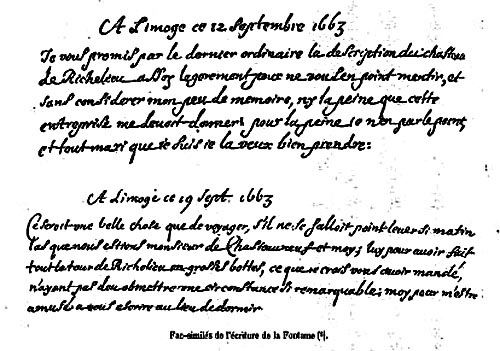 A Limoge ce 12 Septembre 1663
Je vous promis par le dernier ordinaire la description du chasteau
de Richelieu assez legerement pour ne vous en point mentir, et
sans considerer mon peu de memoire, ny la peine que cette
entreprise me devoit donner; pour la peine je n'en parle point,
et tout mari que je suis je la veux bien prendre:
A Limoge ce 19 Sept. 1663
Ce seroit une belle chose que de voyager, s'il ne se falloit point lever si matin
las que nous estions monsieur de Chasteauneuf et moy; luy pour avoir fait
tout le tour de Richelieu en grosses bottes, ce que je crois vous avoir mandé,
n'ayant pas deu obmettre une circonstance si remarquable; moy pour m'estre
amusé a vous escrire au lieu de dormir
Fac-similés de l'écriture de la Fontaine (*).